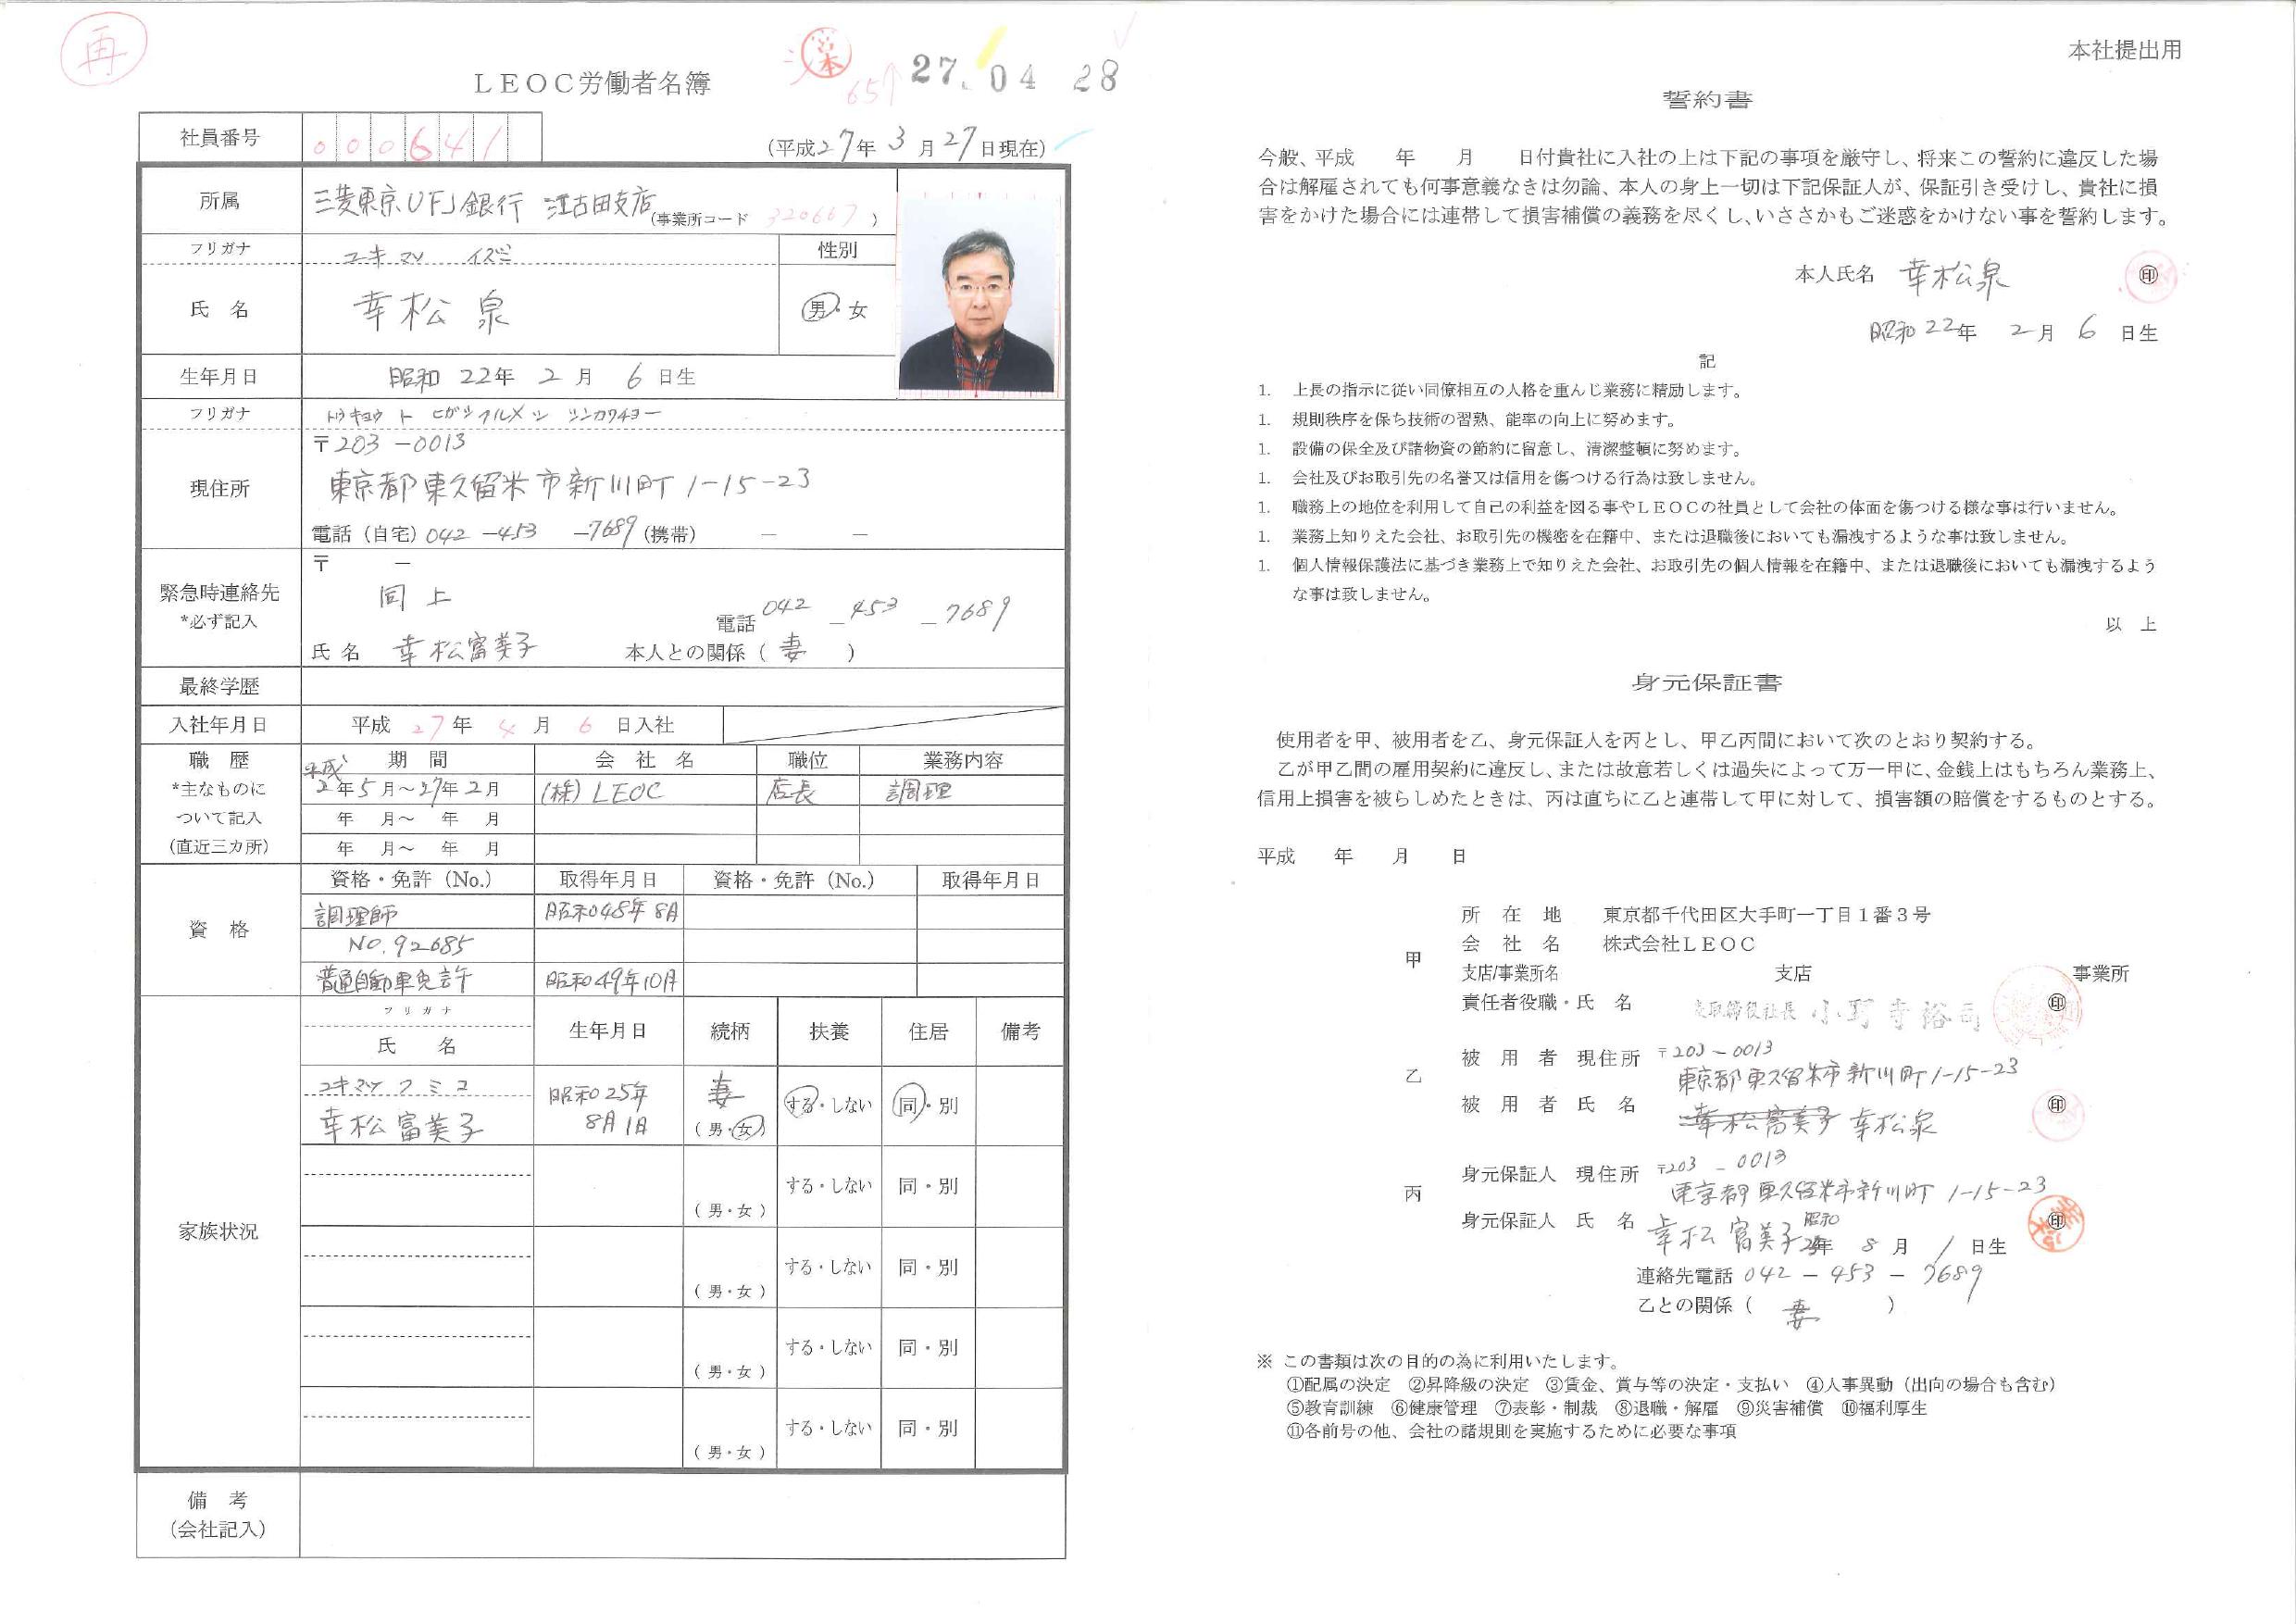 再
宮本
65↑
27.04 28
LEOC労働者名簿
社員番号 000641
(平成27年3月27日現在)
所属 三菱東京UFJ銀行 江古田支店 (事業所コード 320667)
フリガナ ユキマツ イズミ 性別
氏名 幸松 泉 男・女
生年月日 昭和22年2月6日生
フリガナ トウキョウト ヒガシクルメシ シンカワチョー
〒203-0013
現住所 東京都東久留米市新川町1-15-23
電話(自宅)042-453-7689(携帯) - -
〒 -
緊急時連絡先 同上
*必ず記入 電話 042-453-7689
氏名 幸松富美子 本人との関係(妻)
最終学歴
入社年月日 平成27年4月6日入社
職歴 期間 会社名 職位 業務内容
*主なものに 平成2年5月~27年2月 (株)LEOC 店長 調理
ついて記入 年 月~ 年 月
(直近三カ所) 年 月~ 年 月
資格・免許(No.) 取得年月日 資格・免許(No.) 取得年月日
資格 調理師 昭和48年8月
No.92685
普通自動車免許 昭和49年10月
フリガナ
氏名 生年月日 続柄 扶養 住居 備考
ユキマツ フミコ 昭和25年 妻 する・しない 同・別
幸松富美子 8月1日 (男・女)
する・しない 同・別
(男・女)
家族状況
する・しない 同・別
(男・女)
する・しない 同・別
(男・女)
する・しない 同・別
(男・女)
備考
(会社記入)
本社提出用
誓約書
今般、平成 年 月 日付貴社に入社の上は下記の事項を厳守し、将来この誓約に違反した場
合は解雇されても何事意義なきは勿論、本人の身上一切は下記保証人が、保証引き受けし、貴社に損
害をかけた場合には連帯して損害補償の義務を尽くし、いささかもご迷惑をかけない事を誓約します。
本人氏名 幸松泉 ㊞
昭和22年 2月 6日生
記
1. 上長の指示に従い同僚相互の人格を重んじ業務に精励します。
1. 規則秩序を保ち技術の習熟、能率の向上に努めます。
1. 設備の保全及び諸物資の節約に留意し、清潔整頓に努めます。
1. 会社及びお取引先の名誉又は信用を傷つける行為は致しません。
1. 職務上の地位を利用して自己の利益を図る事やLEOCの社員として会社の体面を傷つける様な事は行いません。
1. 業務上知りえた会社、お取引先の機密を在籍中、または退職後においても漏洩するような事は致しません。
1. 個人情報保護法に基づき業務上で知りえた会社、お取引先の個人情報を在籍中、または退職後においても漏洩するよう
な事は致しません。
以上
身元保証書
使用者を甲、被用者を乙、身元保証人を丙とし、甲乙丙間において次のとおり契約する。
乙が甲乙間の雇用契約に違反し、または故意若しくは過失によって万一甲に、金銭上はもちろん業務上、
信用上損害を被らしめたときは、丙は直ちに乙と連帯して甲に対して、損害額の賠償をするものとする。
平成 年 月 日
所在地 東京都千代田区大手町一丁目1番3号
会社名 株式会社LEOC
甲
支店/事業所名 支店 事業所
責任者役職・氏名 取締役社長 小野寺裕司 ㊞
被用者 現住所 〒203-0013
東京都東久留米市新川町1-15-23
乙
被用者氏名 幸松富美子 幸松泉 ㊞
身元保証人 現住所 〒203-0013
東京都東久留米市新川町1-15-23
丙
身元保証人 氏名 幸松富美子 昭和25年 8月 1日生 ㊞
連絡先電話 042-453-7689
乙との関係(妻)
※ この書類は次の目的の為に利用いたします。
①配属の決定 ②昇降級の決定 ③賃金、賞与等の決定・支払い ④人事異動(出向の場合も含む)
⑤教育訓練 ⑥健康管理 ⑦表彰・制裁 ⑧退職・解雇 ⑨災害補償 ⑩福利厚生
⑪各前号の他、会社の諸規則を実施するために必要な事項